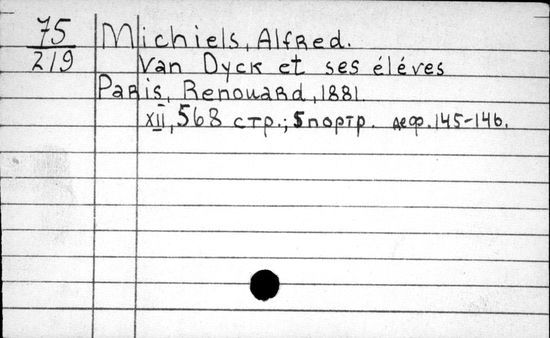 75
219
Michiels, Alfred.
Van Dyck et ses éléves
Paris, Renouard, 1881.
XII, 568 стр.; 5 портр. деф. 145-146.